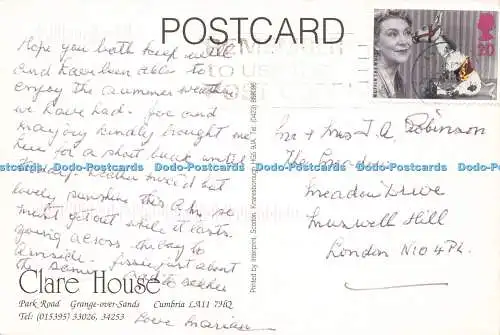 POSTCARD
Hope you both keep well
and have been able to
enjoy the summer weather
we have had. Joe and
Marjory kindly brought me
here for a short break until
Friday. Weather mixed but
lovely sunshine this a.m. so
must get out while it lasts.
going across the bay to
Arnside. just about
the same
Love Marian
Clare House
Park Road Grange-over-Sands Cumbria LA11 7HQ
Tel: (015395) 33026, 34253
Printed by Interprint, Scotton, Knaresborough HG5 9JA. Tel. (0423) 868036
TO US
20
Mr & Mrs T. A. Robinson
The
Meadow Drive
Muswell Hill
London N10 4PL.
Dodo-Postcards Dodo-Postcards Dodo-Postcards Dodo-Postcards Dodo-Postcards Dodo-Postcards